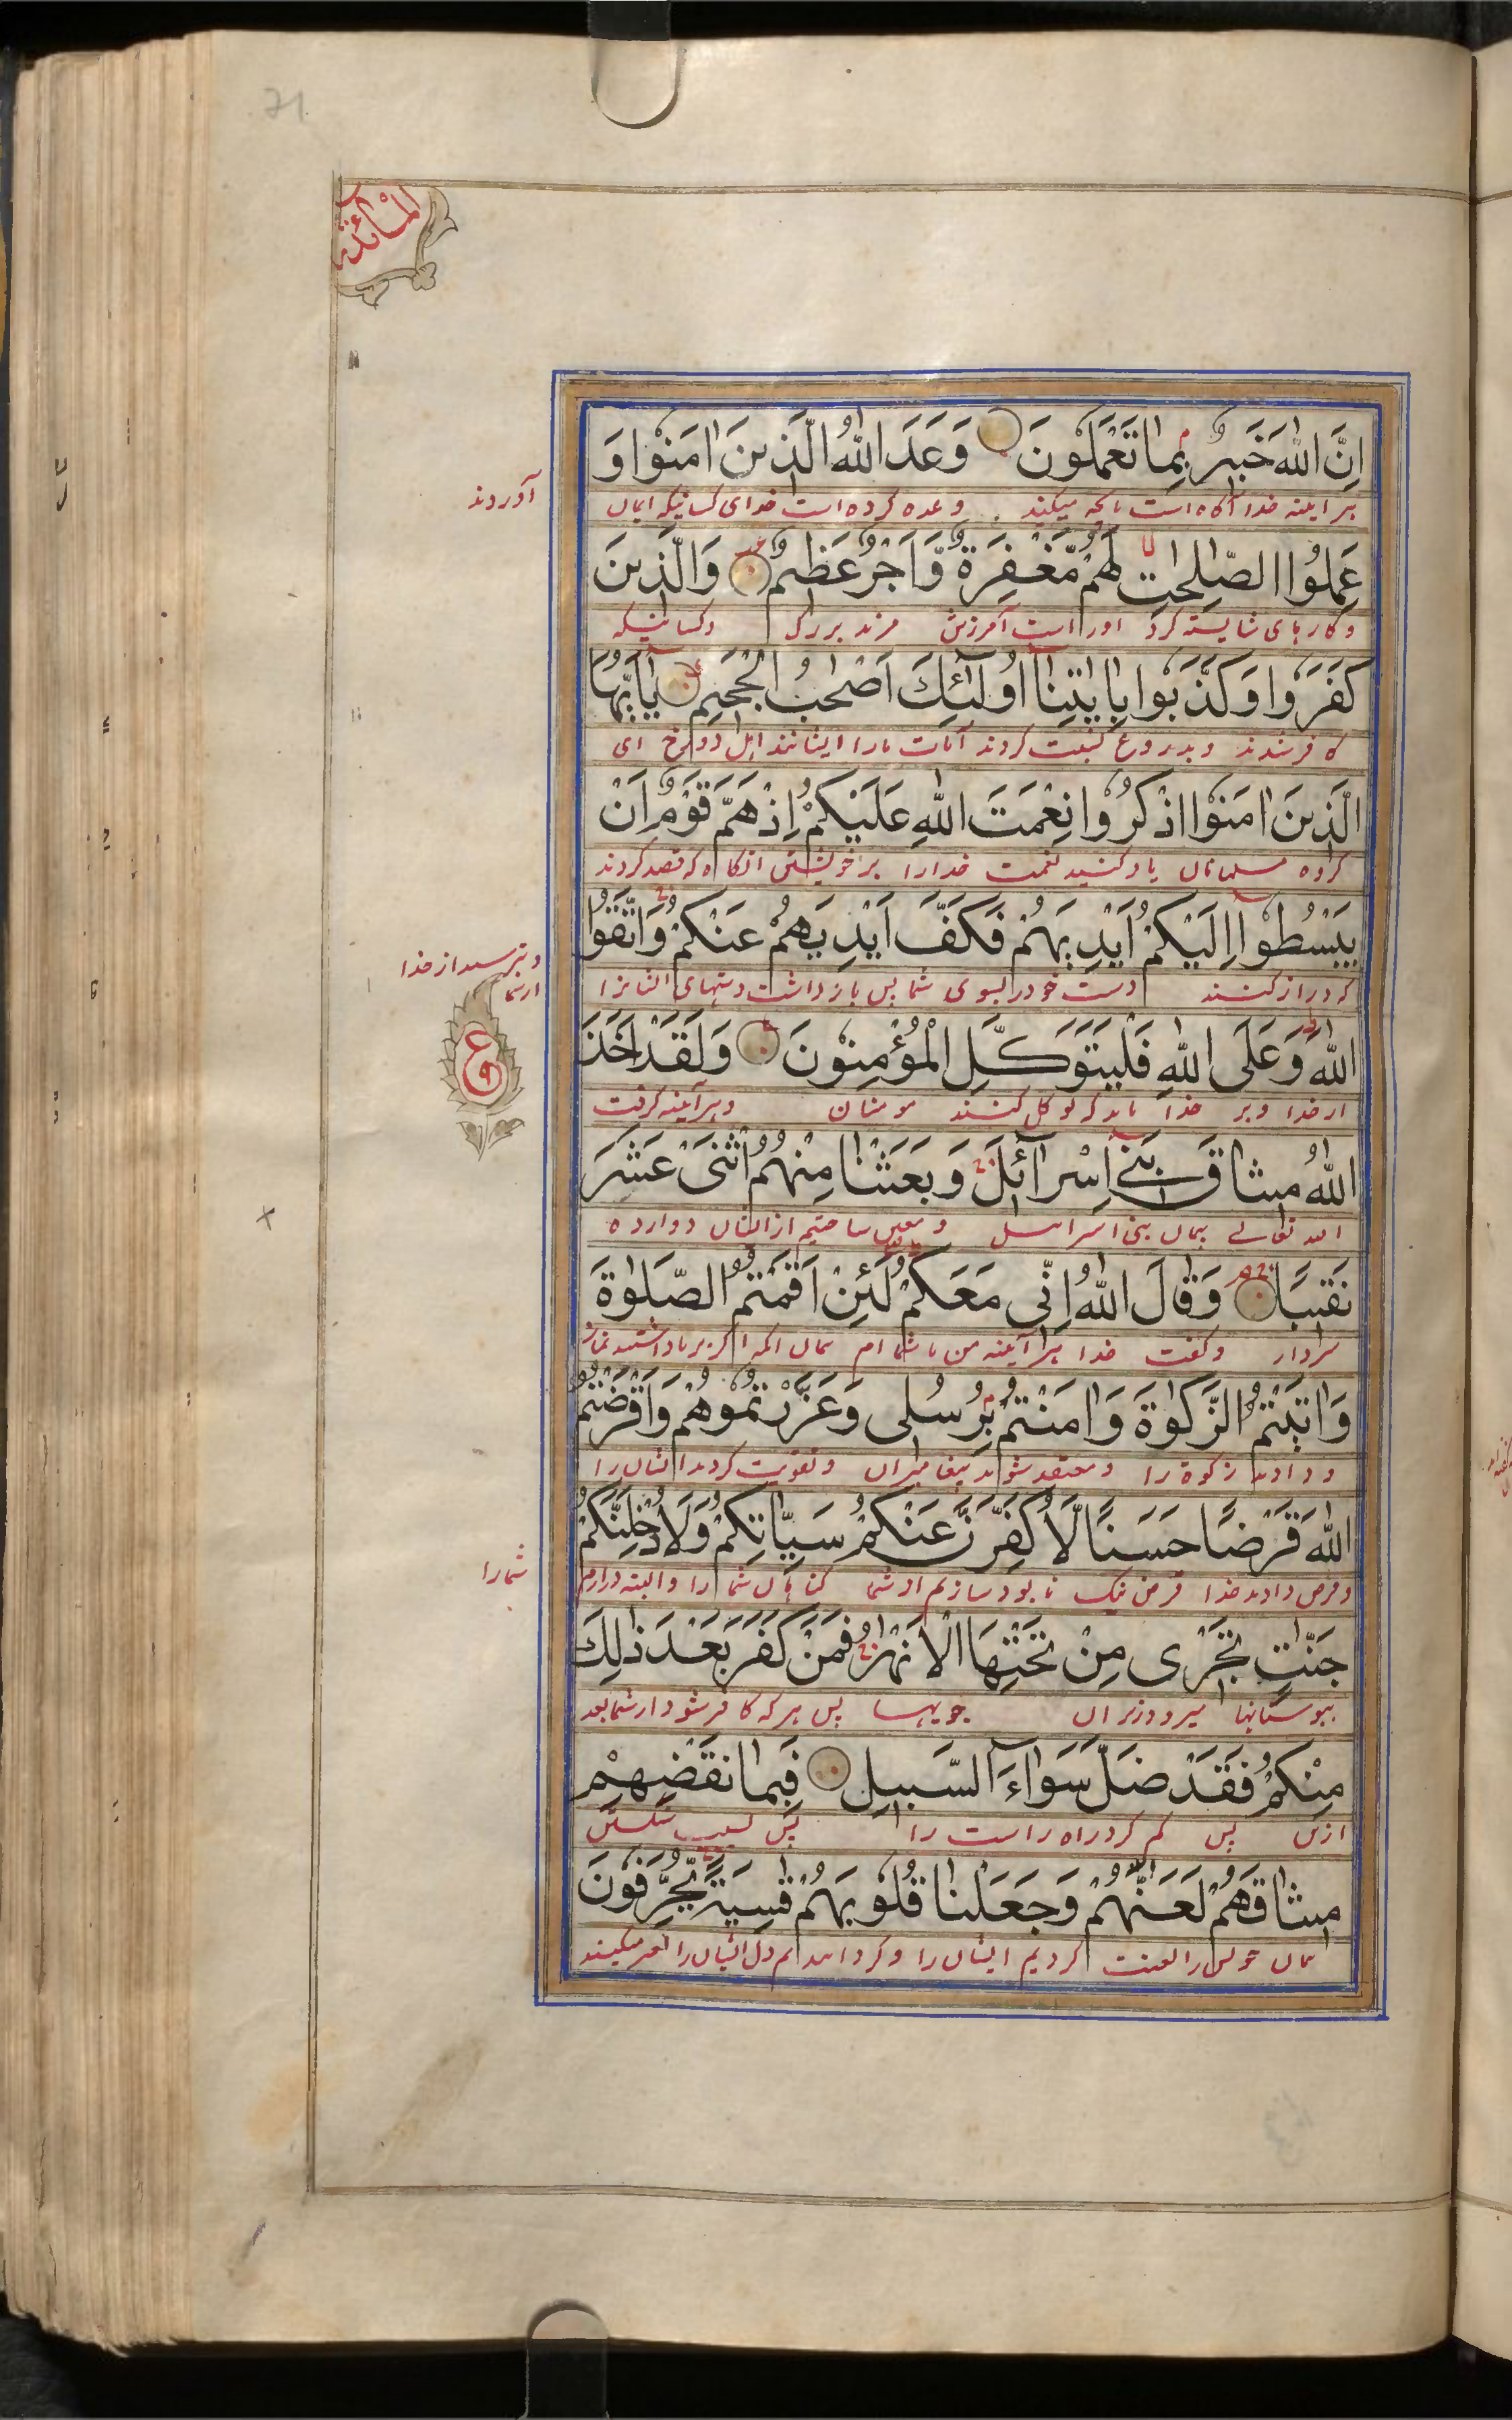 71
المائدة
اِنَّ اللّٰهَ خَبِيرٌ بِمَا تَعْمَلُونَ وَعَدَ اللّٰهُ الَّذِينَ اٰمَنُوا وَ
هر اینه خدا آگاه است بانچه میکنید وعده کرده است خدای کسانیکه ایمان
آوردند
عَمِلُوا الصّٰلِحٰتِ لَهُمْ مَّغْفِرَةٌ وَّاَجْرٌ عَظِيمٌ وَالَّذِينَ
و کارهای شایسته کرد اوراست آمرزش مزد بزرک وکسانیکه
كَفَرُوا وَكَذَّبُوا بِاٰيٰتِنَآ اُولٰٓئِكَ اَصْحٰبُ الْجَحِيمِ يٰٓاَيُّهَا
کافر شدند و بدروغ نسبت کردند آیات مارا ایشانند اهل دوزخ ای
الَّذِينَ اٰمَنُوا اذْكُرُوا نِعْمَتَ اللّٰهِ عَلَيْكُمْ اِذْ هَمَّ قَوْمٌ اَنْ
کروه مسلمانان یاد کنسید نعمت خدارا بر خویشتن انکاه که قصد کردند
يَبْسُطُوٓا اِلَيْكُمْ اَيْدِيَهُمْ فَكَفَّ اَيْدِيَهُمْ عَنْكُمْ وَاتَّقُوا
که دراز کنند دست خود را بسوی شما پس باز داشت دستهای ایشانرا
از شما
و بترسید از خدا
اللّٰهَ وَعَلَى اللّٰهِ فَلْيَتَوَكَّلِ الْمُؤْمِنُونَ وَلَقَدْ اَخَذَ
از خدا و بر خدا باید که توکل کنند مومنان و هر آینه کرفت
ع
اللّٰهُ مِيثَاقَ بَنِيٓ اِسْرَآئِيلَ وَبَعَثْنَا مِنْهُمُ اثْنَىْ عَشَرَ
الله تعالے پیمان بنی اسرائیل و معین ساختیم از ایشان دوازده
نَقِيبًا وَقَالَ اللّٰهُ اِنِّي مَعَكُمْ لَئِنْ اَقَمْتُمُ الصَّلٰوةَ
سردار و کفت خدا هر آینه من با شما ام اگر برپا داشتید نماز
وَاٰتَيْتُمُ الزَّكٰوةَ وَاٰمَنْتُمْ بِرُسُلِى وَعَزَّرْتُمُوهُمْ وَاَقْرَضْتُمُ
و دادید زکوة را و معتقد شوید پیغامبران و تقویت کردید ایشان را
اللّٰهَ قَرْضًا حَسَنًا لَّاُكَفِّرَنَّ عَنْكُمْ سَيِّاٰتِكُمْ وَلَاُدْخِلَنَّكُمْ
و قرض دادید خدا قرض نیک نابود سازیم از شما کناهان شما را و البته درارم
شما را
جَنّٰتٍ تَجْرِى مِنْ تَحْتِهَا الْاَنْهٰرُ فَمَنْ كَفَرَ بَعْدَ ذٰلِكَ
ببوستانها میرود زیر ان جویها پس هر که کافر شود از شما بعد
مِنْكُمْ فَقَدْ ضَلَّ سَوَآءَ السَّبِيلِ فَبِمَا نَقْضِهِمْ
ازین پس کم کرد راه راست را پس بسبب شکستن
مِيثَاقَهُمْ لَعَنّٰهُمْ وَجَعَلْنَا قُلُوبَهُمْ قٰسِيَةً يُّحَرِّفُونَ
لعنت کردیم ایشان را دل ایشان را میکنند